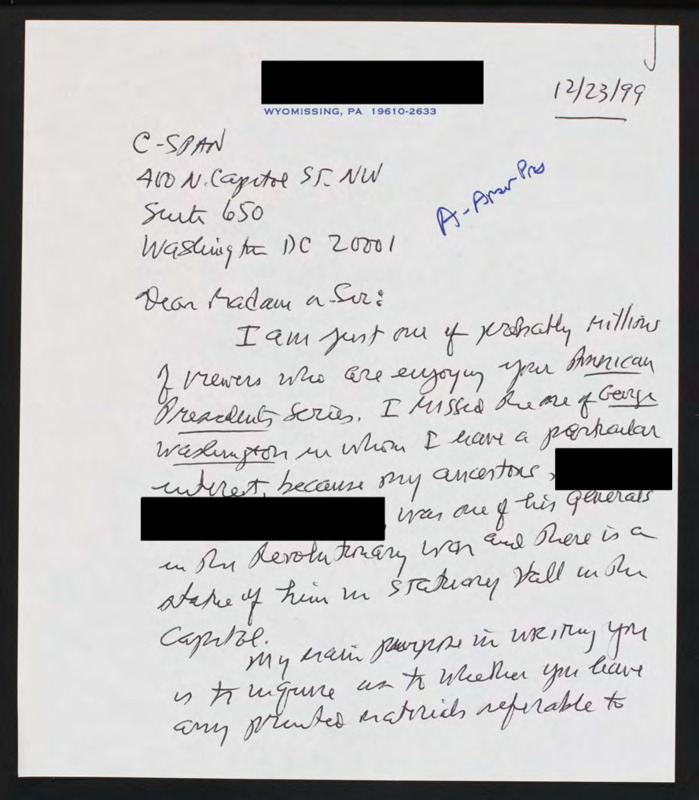 WYOMISSING, PA 19610-2633
12/23/99
C-SPAN
400 N. Capitol ST. NW
Suite 650
Washington DC 20001
A-Amer Pres
Dear Madam or Sir:
I am just one of probably millions
of viewers who are enjoying your American
Presidents Series. I missed the one of George
Washington in whom I have a particular
interest, because my ancestors,
was one of his generals
in the Revolutionary War and there is a
statue of him in Statuary Hall in the
Capitol.
My main purpose in writing you
is to inquire as to whether you have
any printed materials referable to